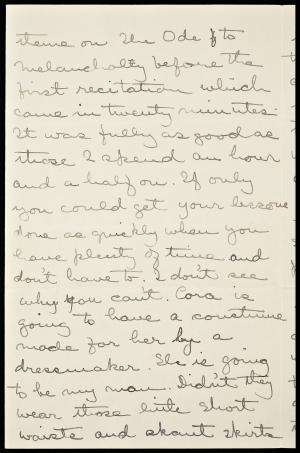 theme on the Ode to
Melancholy before the
first recitation which
came in twenty minutes.
It was fully as good as
those I spend an hour
and a half on. If only
you could get your lessons
done as quickly when you
have plenty of time and
don't have to. I don't see
why you can't. Cora is
going to have a costume
made for her by a
dressmaker. She is going
to be my man. Didn't they
wear those little short
waists and skant skirts